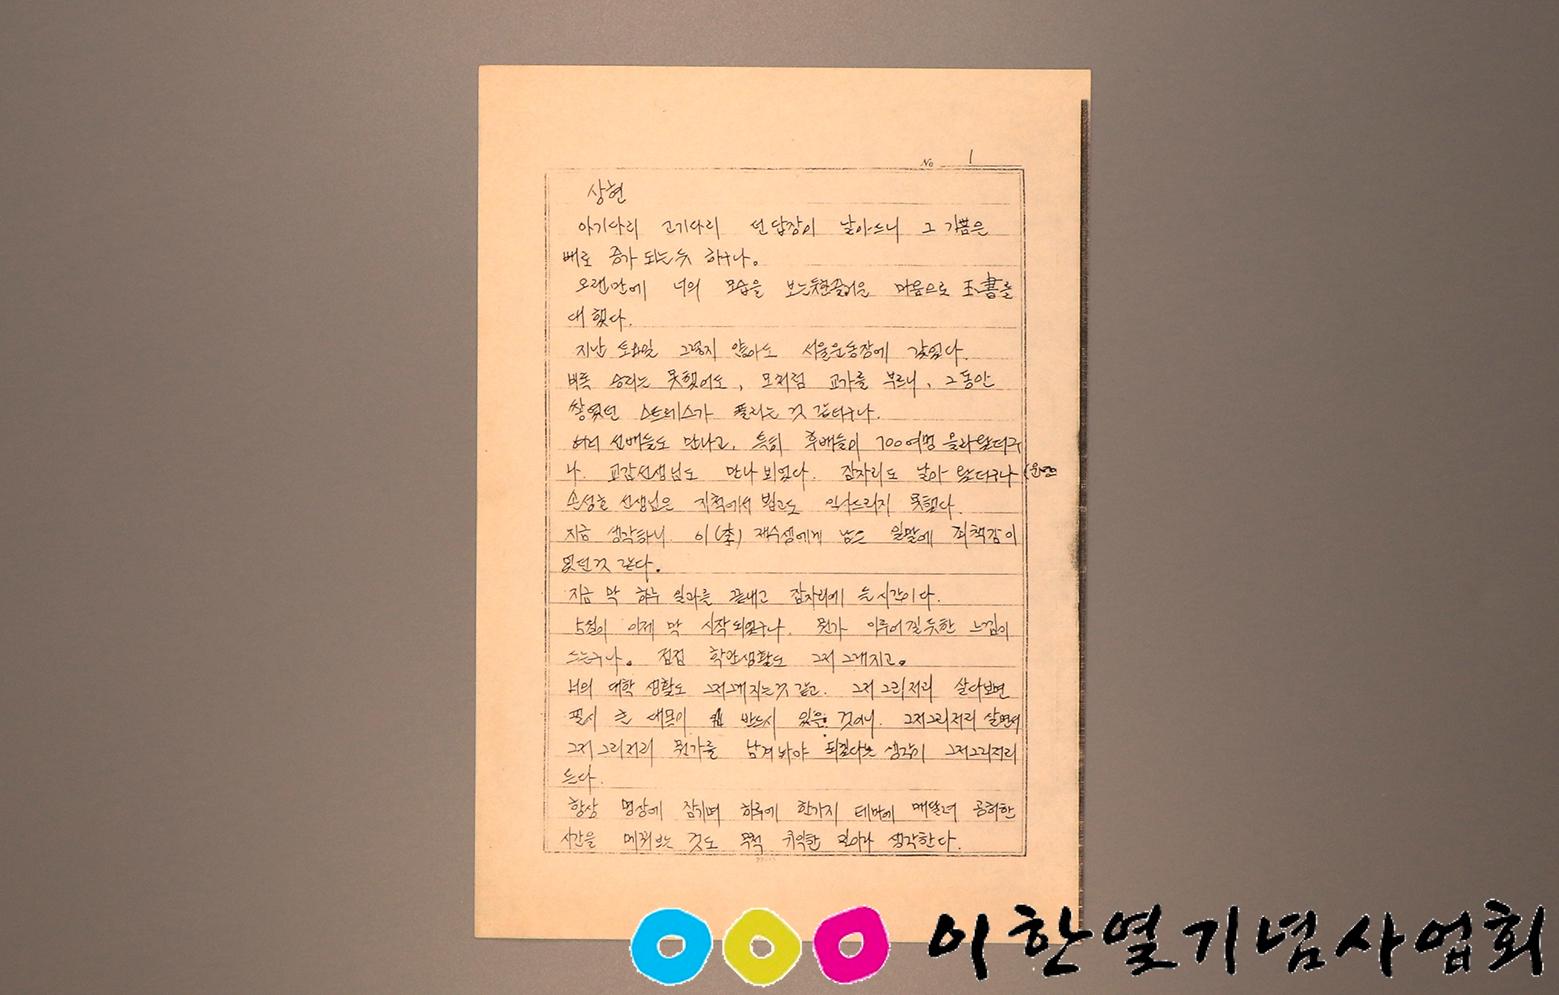 No 1
상현
아기다리 고기다리 던 답장이 날아드니 그 기쁨은
배로 증가 되는듯 하구나.
오랜만에 너의 모습을 보는듯한 마음으로 玉書를
대했다.
지난 토요일 그렇지 않아도 서울운동장에 갔었다.
비록 승리는 못했어도, 모처럼 교가를 부르니, 그동안
쌓였던 스트레스가 풀리는 것 같더구나.
여러 선배들도 만나고, 특히 후배들이 700여명 올라왔더구
나. 교감선생님도 만나 뵈었다. 잠자리도 날아 왔더구나
손성호 선생님은 지척에서 뵙고도 인사드리지 못했다.
지금 생각하니 이(李) 재수생에게 남은 일말에 죄책감이
었던것 같다.
지금 막 하루 일과를 끝내고 잠자리에 들 시간이다.
5월이 이제 막 시작되었구나. 뭔가 이루어질 듯한 느낌이
드는구나. 점점 학관생활도 그저 그래지고.
너의 대학 생활도 그저그래지는것 같고. 그저 그리저리 살다보면
필시 큰 대목이 반드시 있을 것이니. 그저그리저리 살면서
그저 그리저리 뭔가를 남겨 놔야 되겠다는 생각이 그저그리저리
든다.
항상 명상에 잠기며 하루에 한가지 테마에 매달려 공허한
시간을 메꿔보는 것도 무척 유익한 일이라 생각한다.
이한열기념사업회